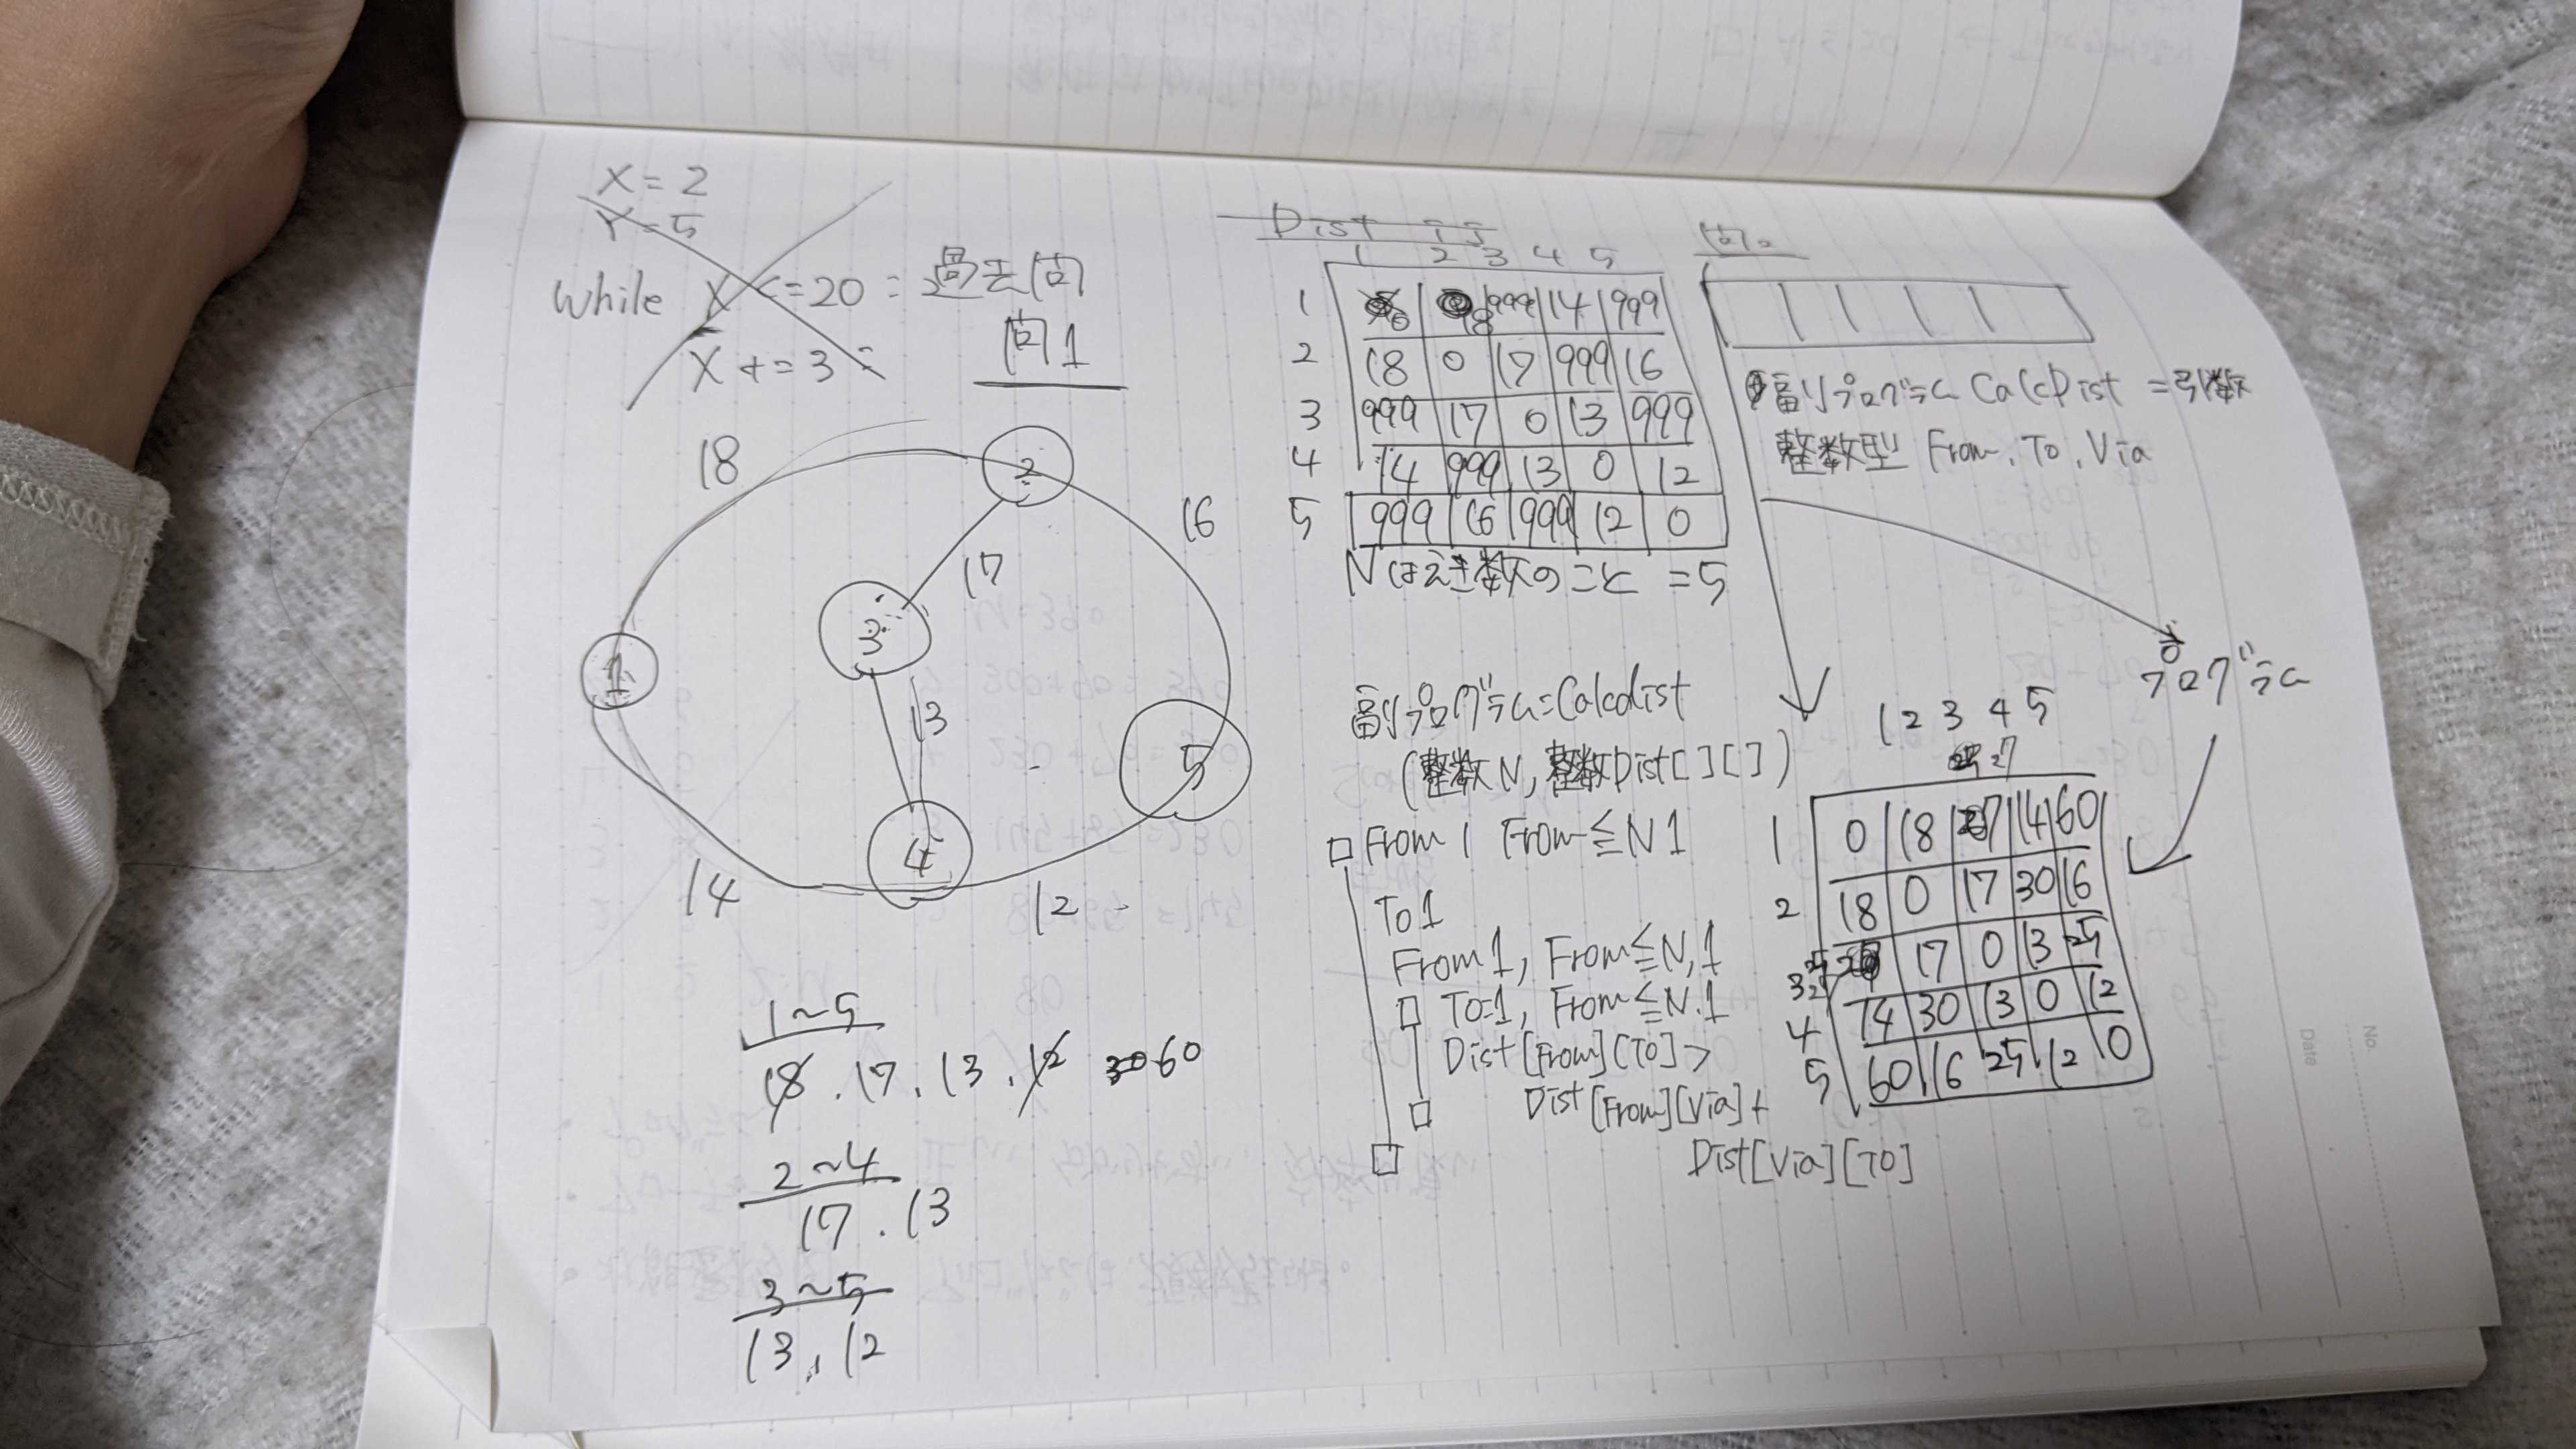 X = 2
Y = 5
while X <= 20 : 過去問
X += 3 :
問1
18
2
16
17
3
1
13
5
4
14
12
1～5
18 . 17 . 13 . 12 60
2～4
17 . 13
3～5
13 . 12
Dist i j
1 2 3 4 5
1 0 18 999 14 999
2 18 0 17 999 16
3 999 17 0 13 999
4 14 999 13 0 12
5 999 16 999 12 0
Nはえき数のこと = 5
副プログラム=Calcdist
(整数N, 整数Dist[ ][ ])
□ From 1 From≦N 1
To 1
From 1, From≦N, 1
□ To=1, From≦N.1
Dist[From][To]>
□ Dist[From][Via]+
□ Dist[Via][To]
副プログラム CalcDist =引数
整数型 From. To. Via
プログラム
1 2 3 4 5
27
1 0 18 27 14 60
2 18 0 17 30 16
3 17 0 13 25
4 14 30 13 0 12
5 60 16 25 12 0
No.
Date